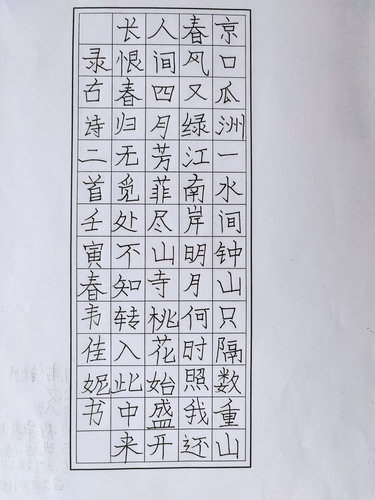 京口瓜洲一水间钟山只隔数重山
春风又绿江南岸明月何时照我还
人间四月芳菲尽山寺桃花始盛开
长恨春归无觅处不知转入此中来
录古诗二首壬寅春韦佳妮书